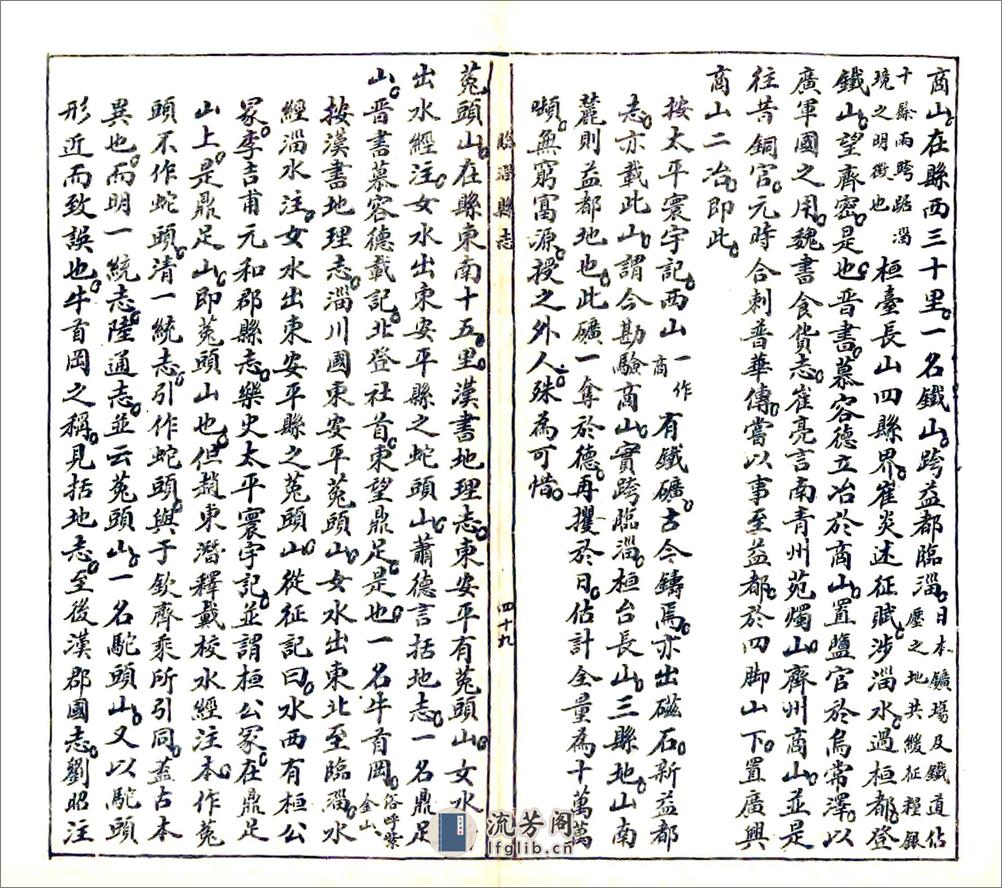 商山。在縣西三十里。一名鐵山。跨益都臨淄。日本鑛場及鐵道佔壓之地共緩征糧銀
十餘兩跨踞淄境之明徵也桓臺長山四縣界。崔炎述征賦。涉淄水。過桓都。登
鐵山。望齊密。是也。晋書。慕容德立冶於商山。置鹽官於烏常澤。以
廣軍國之用。魏書食貨志。崔亮言南青州苑燭山。齊州商山。並是
往昔銅官。元時合剌普華傳。嘗以事至益都。於四脚山下。置廣興
商山二冶。即此。
按太平寰宇記。西山一作商有鐵礦。古今鑄焉。亦出磁石。新益都
志。亦載此山。謂合勘驗商山。實跨臨淄。桓台長山。三縣地。山南
麓則益都地也。此礦一奪於德。再攫於日。估計全量為十萬萬
噸。無窮富源。授之外人。殊為可惜。
臨淄縣志 四十九
菟頭山。在縣東南十五里。漢書地理志。東安平有菟頭山。女水
出水經注。女水出東安平縣之蛇頭山。蕭德言括地志。一名鼎足
山。晋書慕容德載記。北登社首。東望鼎足是也。一名牛首岡。俗呼紫金山。
按漢書地理志。淄川國東安平菟頭山。女水出東北至臨淄。水
經淄水注。女水出東安平縣之菟頭山。從征記曰。水西有桓公
冢。李吉甫元和郡縣志。樂史太平寰宇記。並謂桓公冢。在鼎足
山上。是鼎足山即菟頭山也。但趙東潛釋戴校水經注本。作菟
頭不作蛇頭。清一統志。引作蛇頭。與于欽齊乘所引同。蓋古本
異也。而明一統志。陸通志並云菟頭山。一名駝頭山。又以駝頭
形近而致誤也。牛首岡之稱。見括地志。至後漢郡國志。劉昭注
流芳阁
lfglib.cn